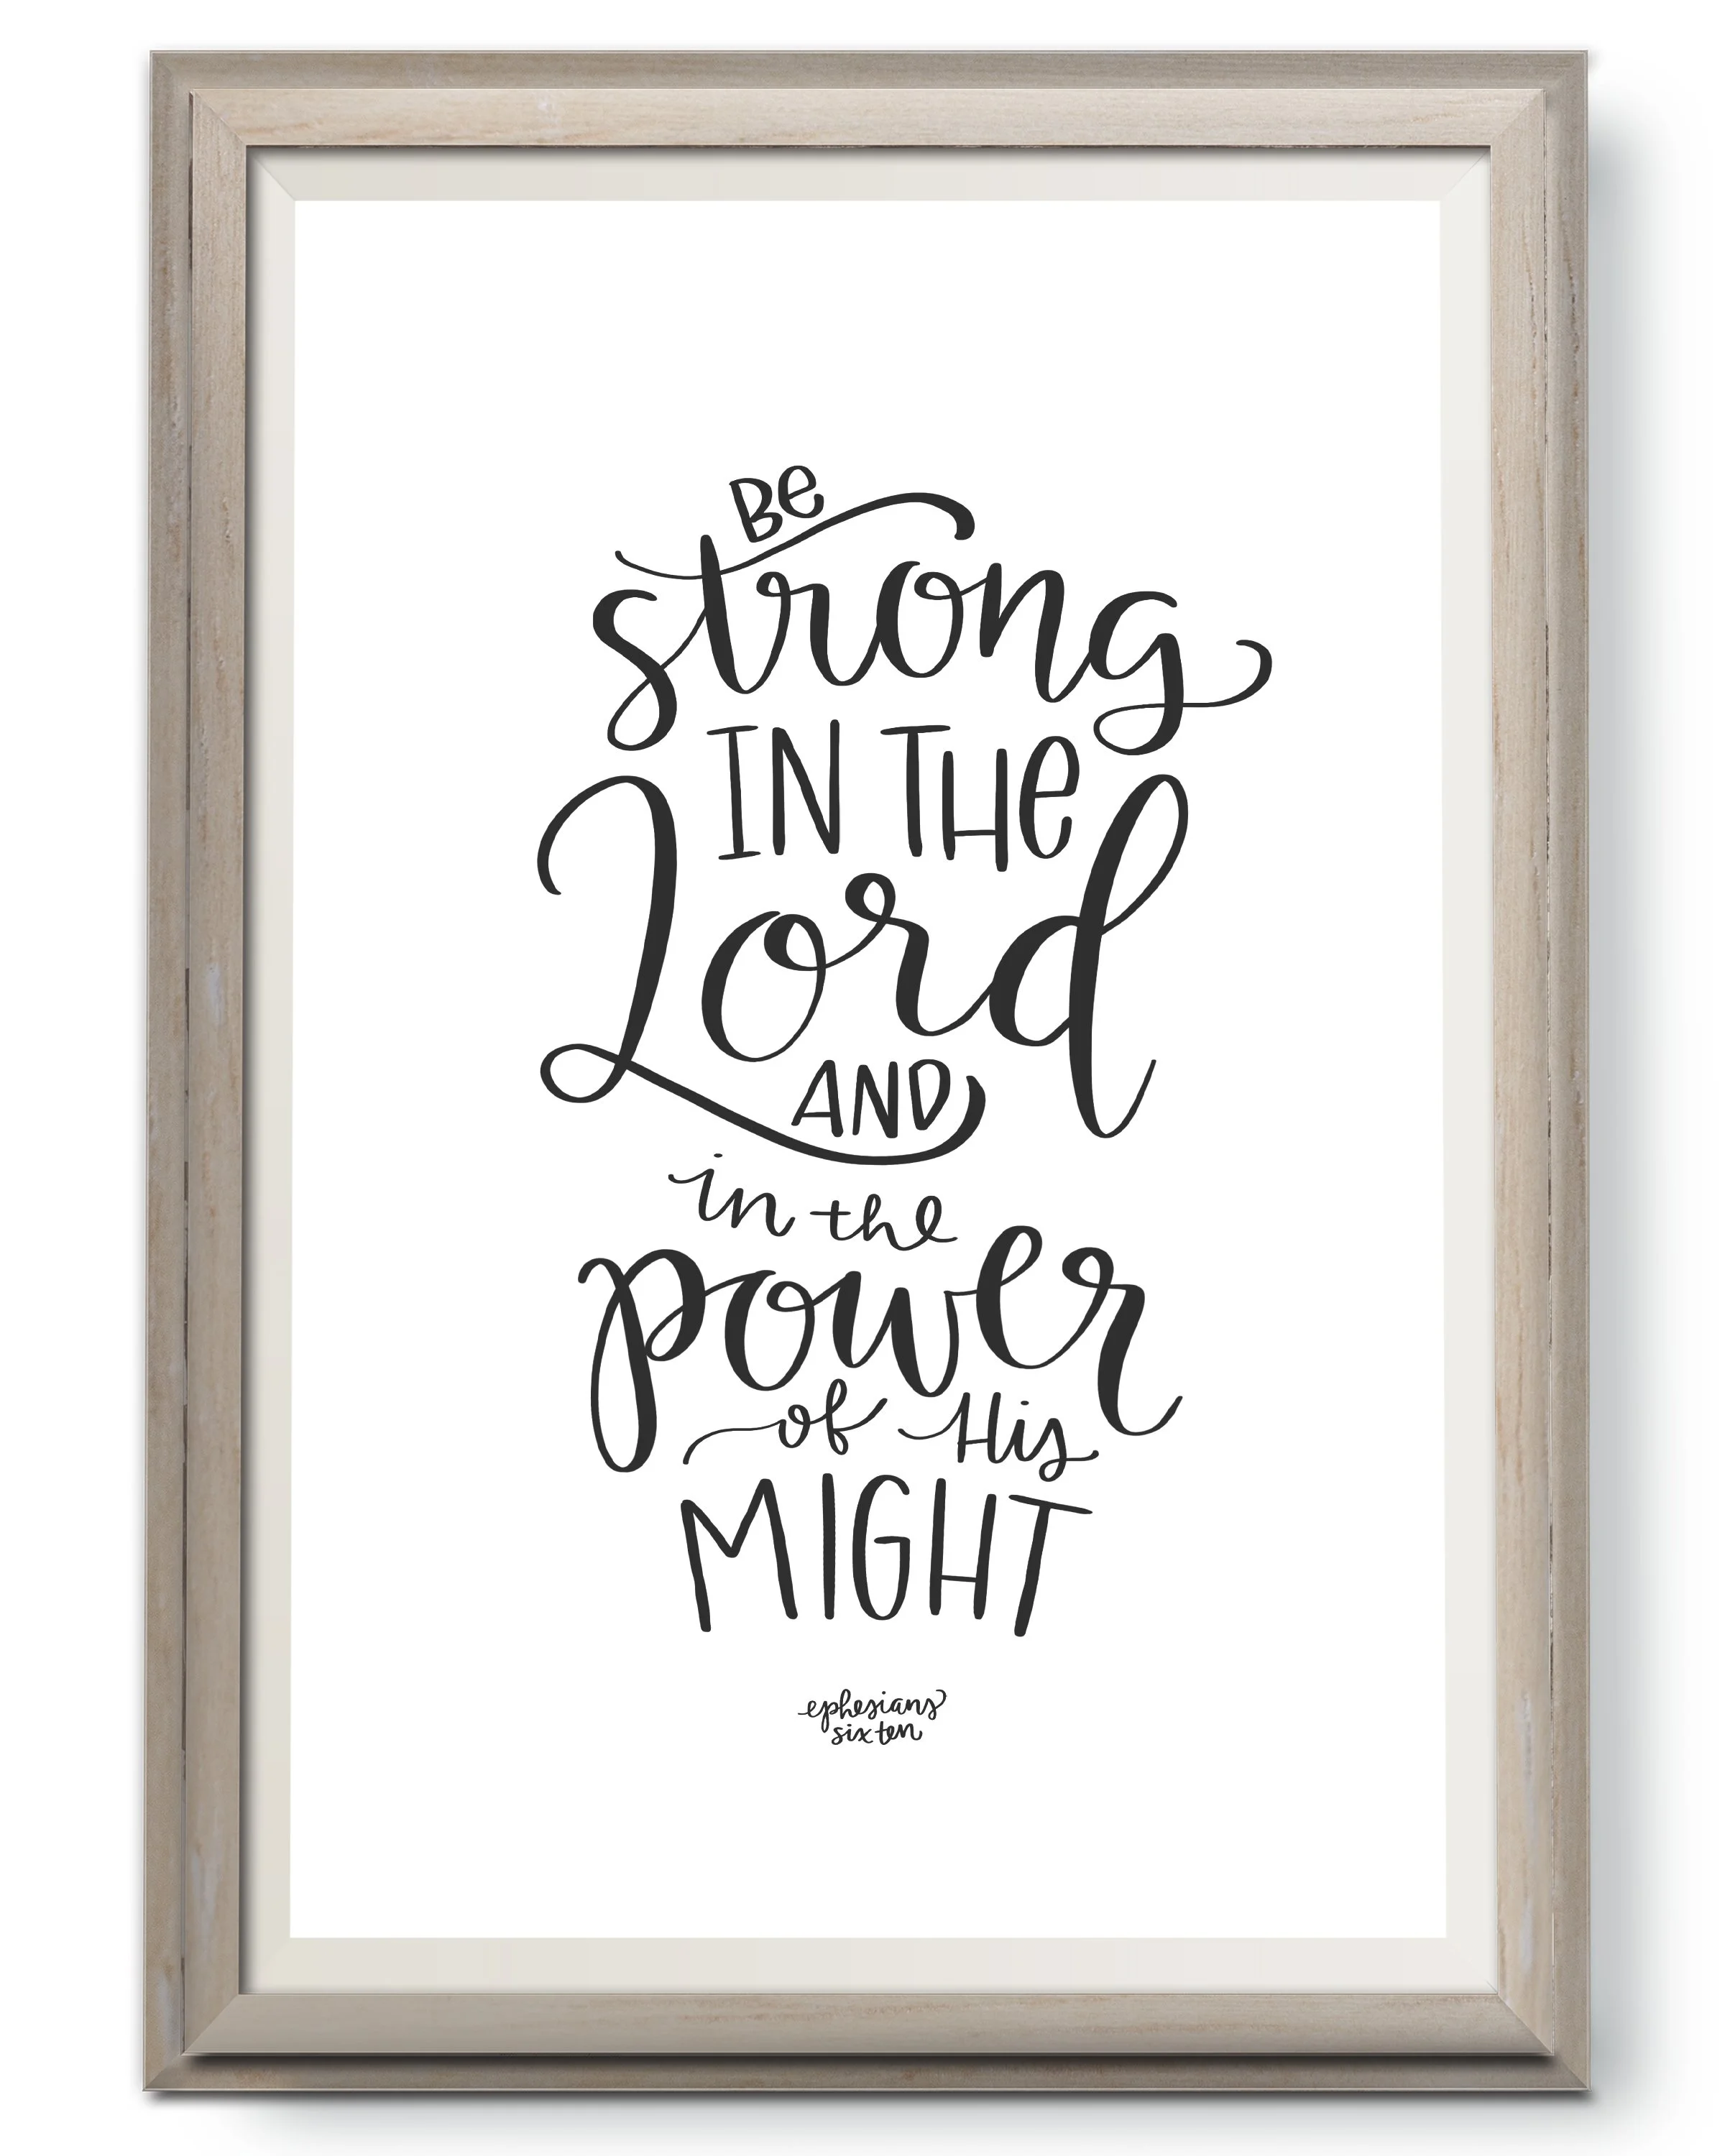 Be
strong
IN THe
Lord
AND
in the
power
of His
MIGHT
ephesians
six ten